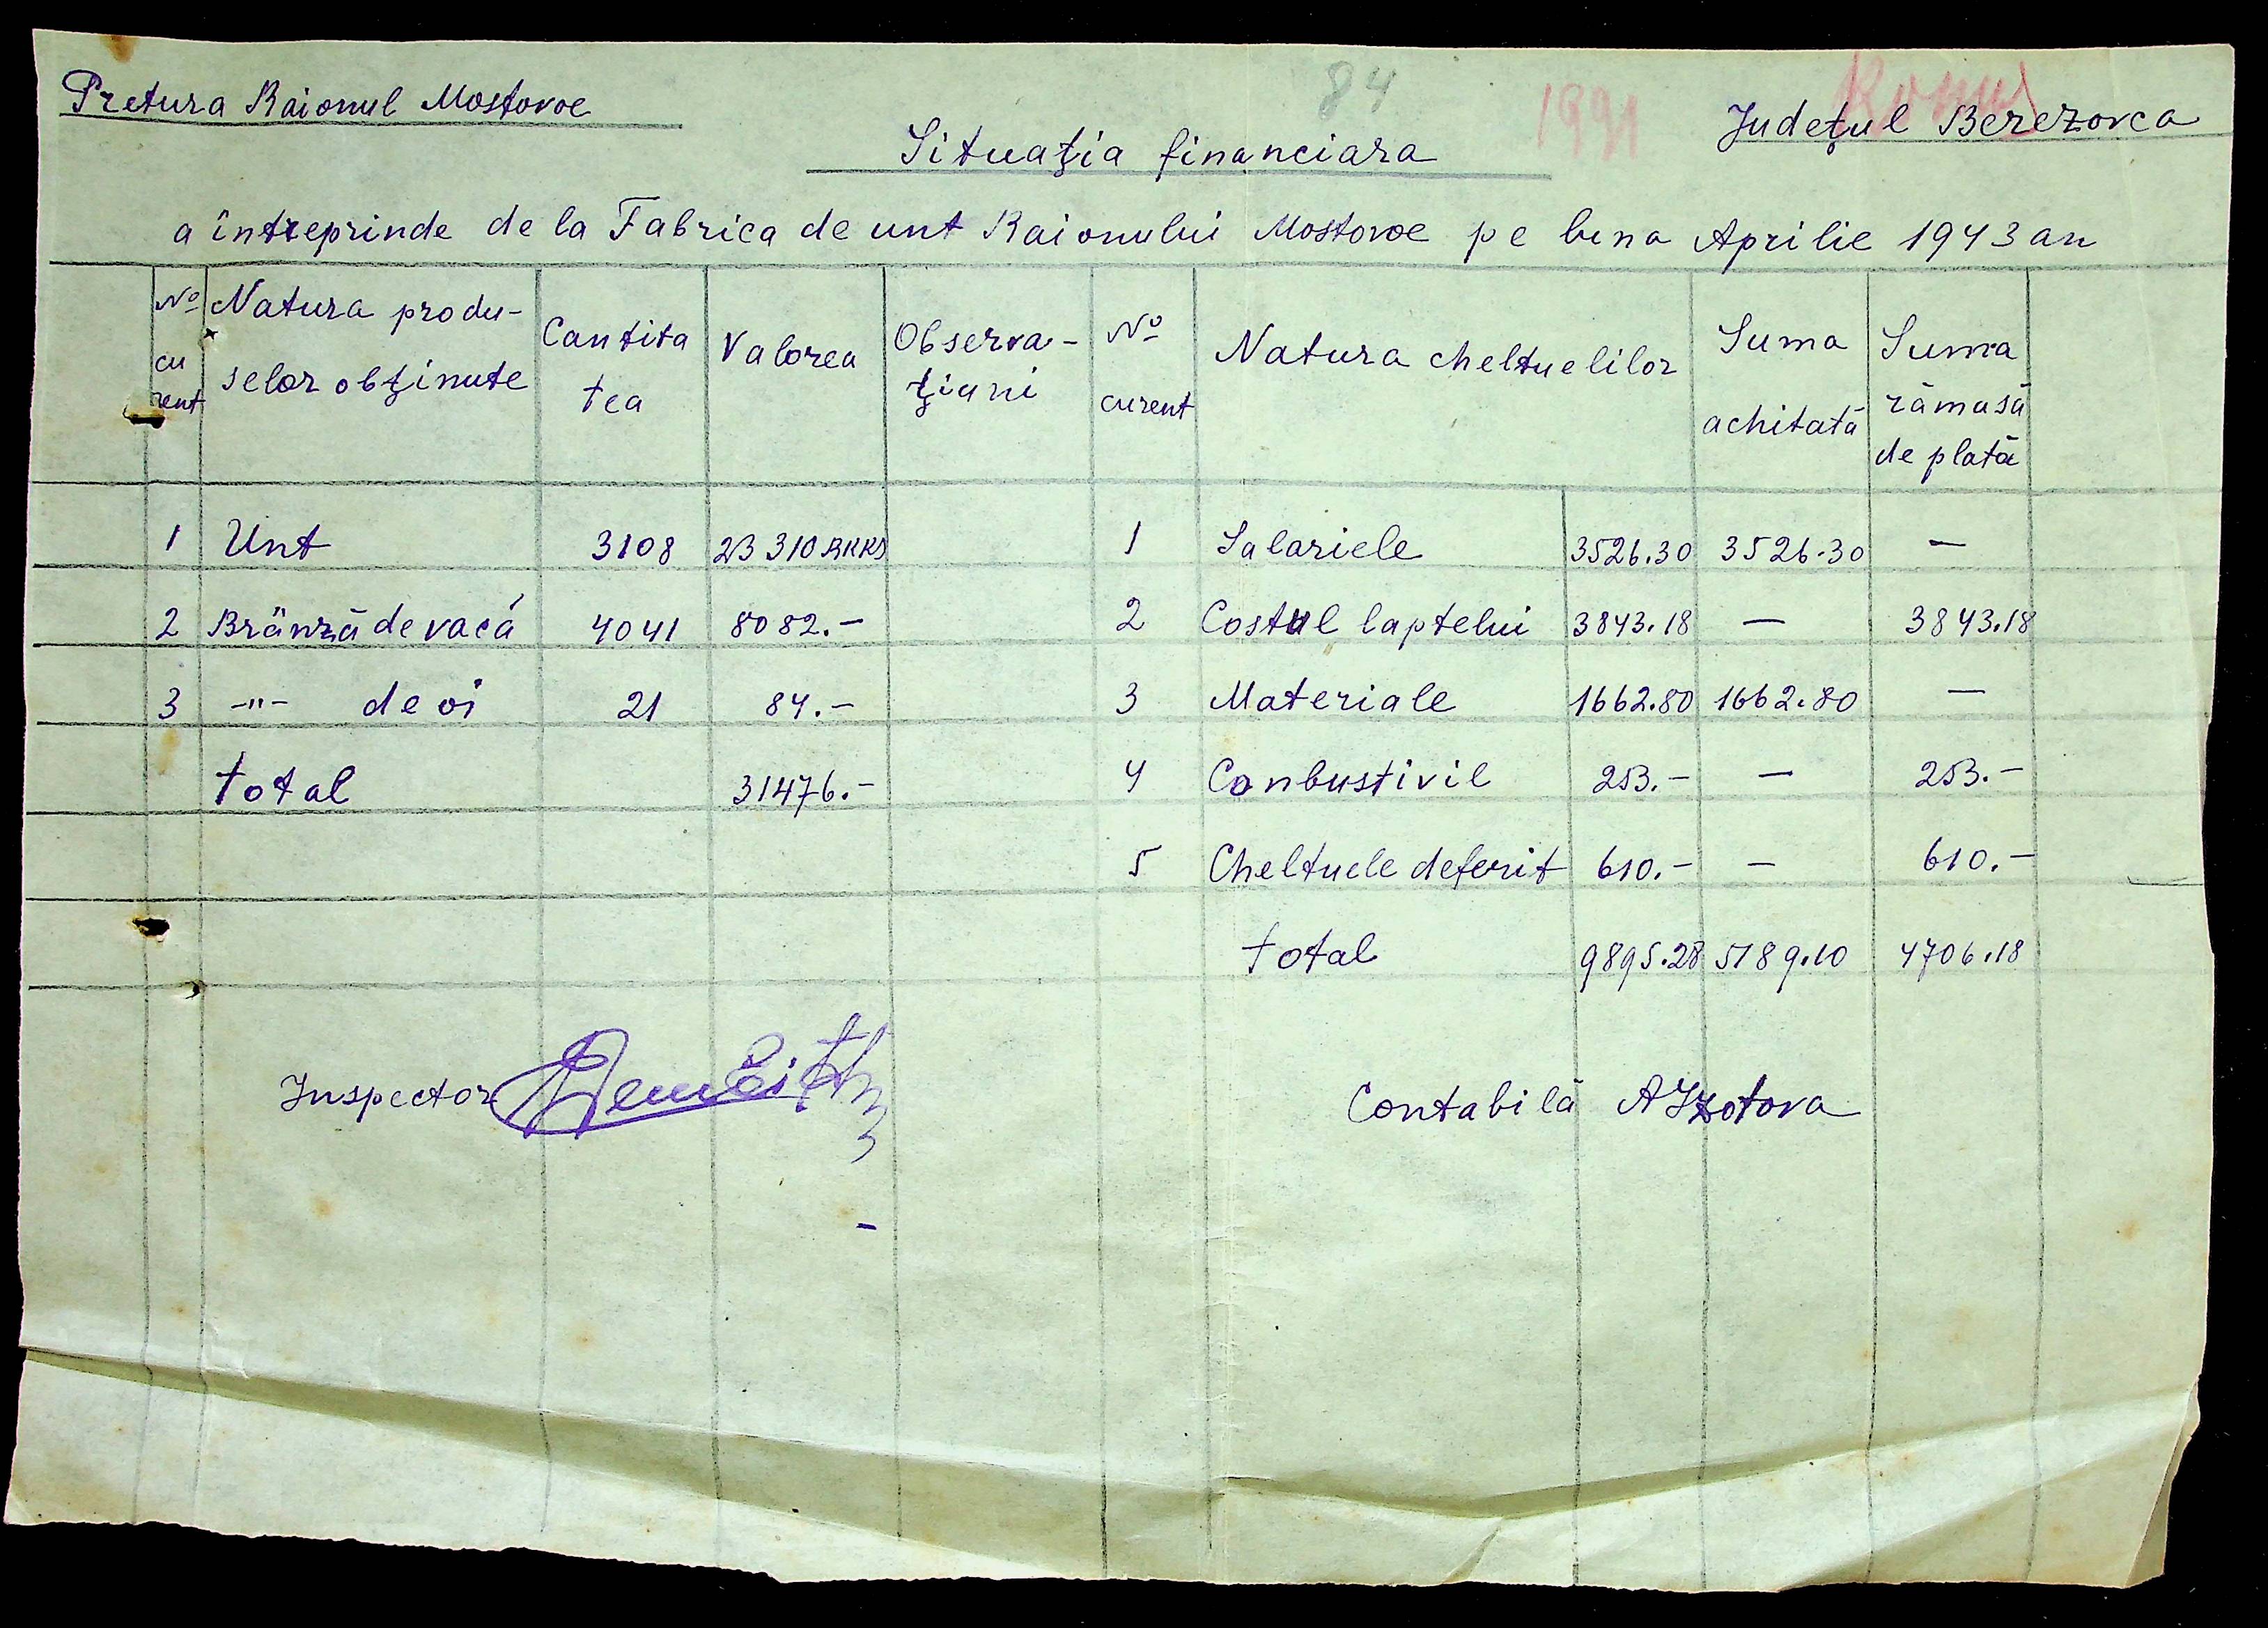 84
1991
Pretura Raionul Mostovoe
Judeţul Berezovca
Situaţia financiara
a întreprinde de la Fabrica de unt Raionului Mostovoe pe luna Aprilie 1943 an
No curent | Natura produselor obţinute | Cantitatea | Valorea | Observaţiuni | No curent | Natura cheltuelilor | Suma achitată | Suma rămasă de plată
1 Unt 3108 23310 RKKS 1 Salariele 3526.30 3526.30 —
2 Bränză de vacá 4041 8082.- 2 Costul laptelui 3843.18 — 3843.18
3 -"- de oi 21 84.- 3 Materiale 1662.80 1662.80 —
total 31476.- 4 Conbustivil 253.- — 253.-
5 Cheltuele deferit 610.- — 610.-
total 9895.28 5189.10 4706.18
Inspector
Contabilă AIzotova